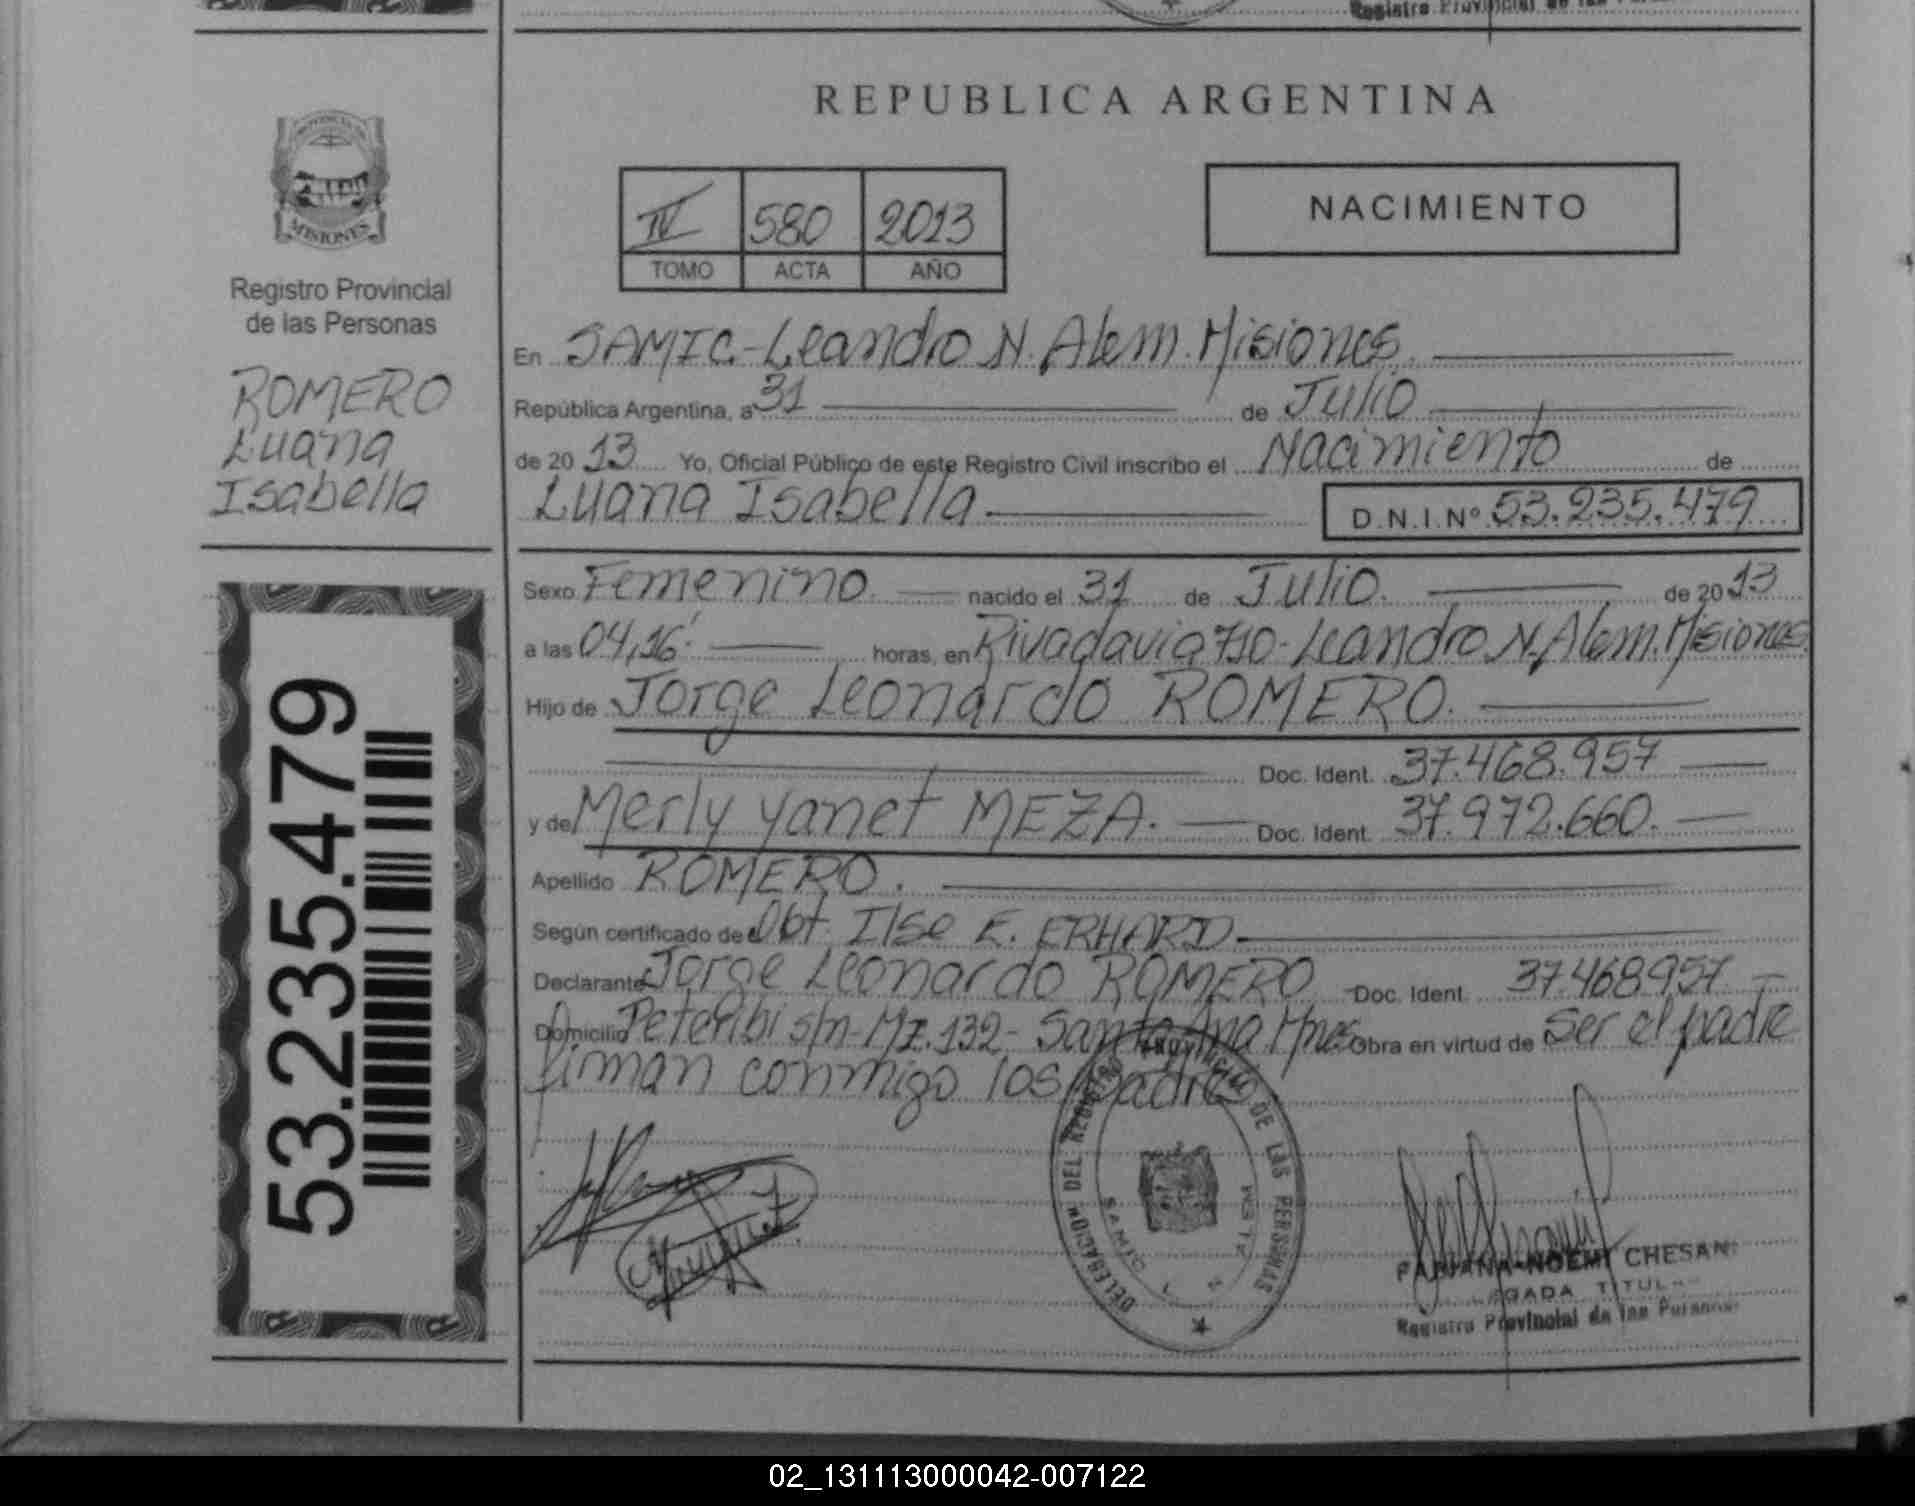 Registro Provincial de las
REPUBLICA ARGENTINA
PROVINCIA DE
MISIONES
Registro Provincial
de las Personas
ROMERO
Luana
Isabella
53.235.479
IV 580 2013
TOMO ACTA AÑO
NACIMIENTO
En SAMIC-Leandro N. Alem. Misiones
República Argentina, a 31 de Julio
de 20 13 Yo, Oficial Público de este Registro Civil inscribo el Nacimiento de
Luana Isabella. D.N.I.Nº 53.235.479
Sexo Femenino. nacido el 31 de Julio. de 20 13
a las 04,16' horas, en Rivadavia 710-Leandro N. Alem. Misiones.
Hijo de Jorge Leonardo ROMERO.
Doc. Ident. 37.468.957
y de Merly Yanet MEZA. Doc. Ident. 37.972.660.
Apellido ROMERO.
Según certificado de Obt. Ilse E. ERHARD.
Declarante Jorge Leonardo ROMERO Doc. Ident. 37.468957
Domicilio Peteribi s/n-Mz.132- Santa Ana Mnes Obra en virtud de Ser el padre
firman conmigo los padres
DELEGACION DEL REGISTRO PROVINCIAL DE LAS PERSONAS
SAMIC
FABIANA NOEMI CHESAN
TITUL
Registro Provincial de las Personas
02_131113000042-007122